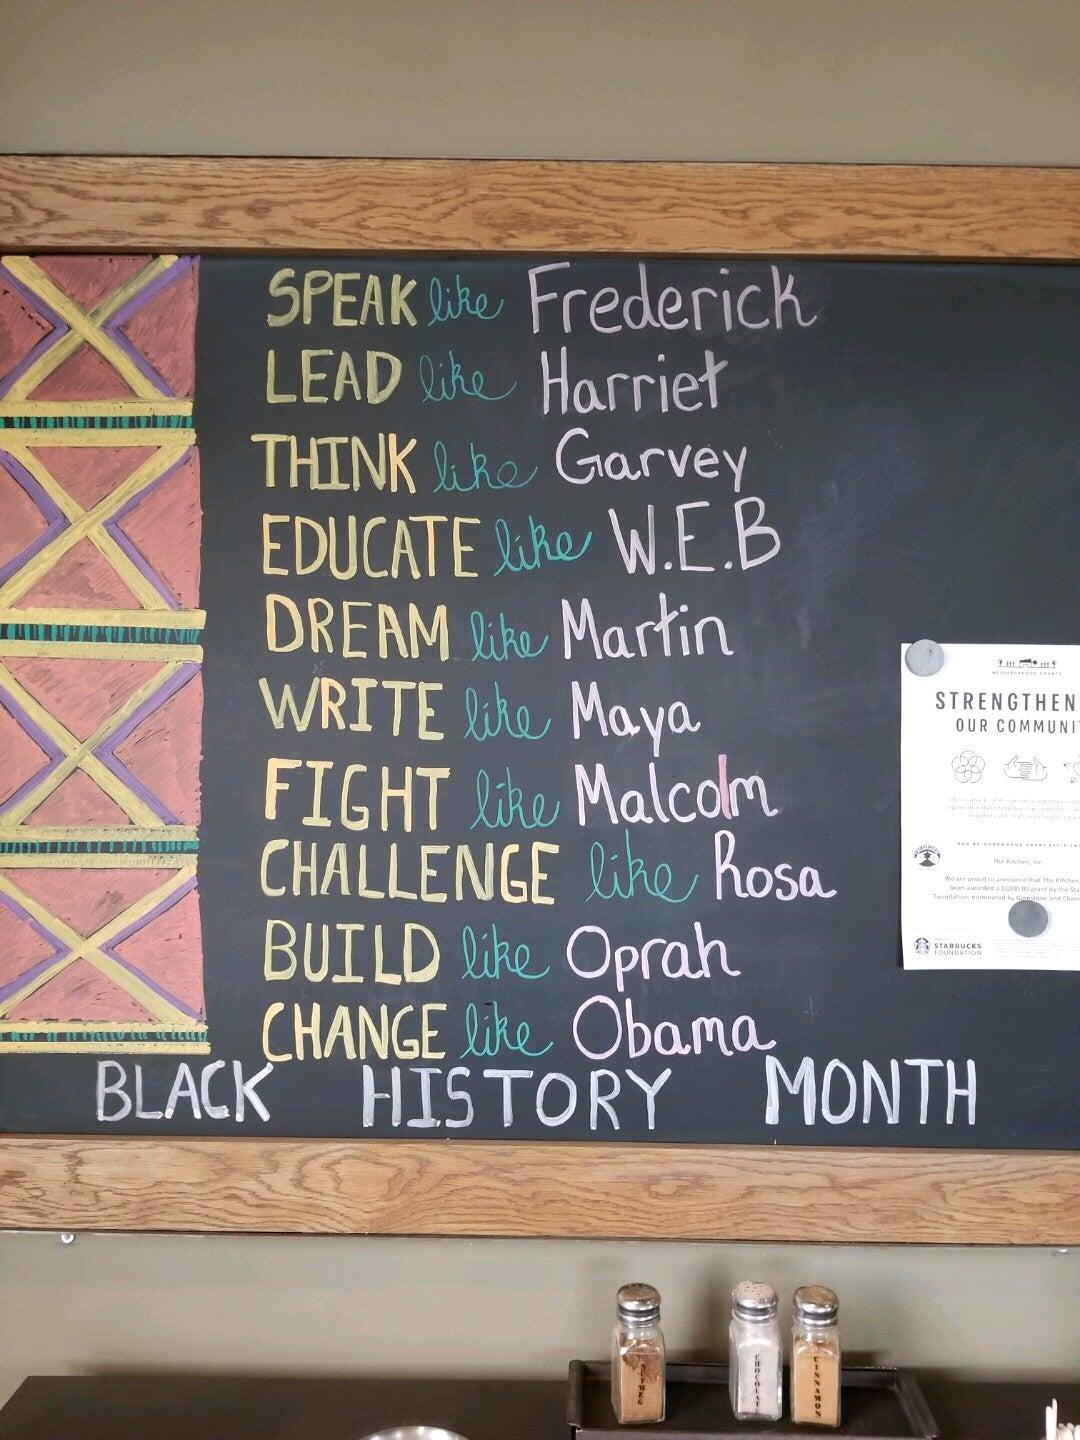 SPEAK like Frederick
LEAD like Harriet
THINK like Garvey
EDUCATE like W.E.B
DREAM like Martin
WRITE like Maya
FIGHT like Malcolm
CHALLENGE like Rosa
BUILD like Oprah
CHANGE like Obama
BLACK HISTORY MONTH
NEIGHBORHOOD GRANTS
STRENGTHEN
OUR COMMUNIT
The Kitchen, Inc.
We are proud to announce that The Kitchen,
been awarded a $1000.00 grant by the Sta
Foundation, nominated by Glenstone and Cher
STARBUCKS
FOUNDATION
NUTMEG
CHOCOLAT
CINNAMON